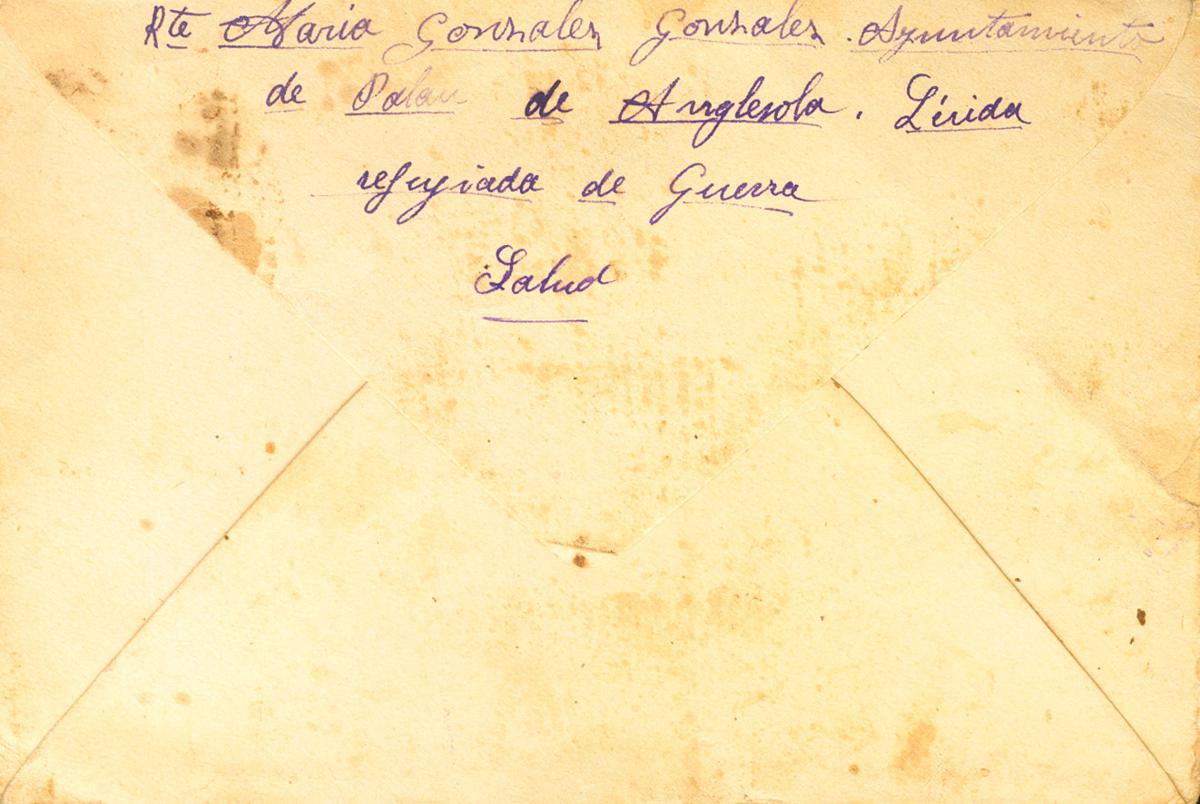 Rte Maria Gonzalez Gonzalez. Ayuntamiento
de Palau de Anglesola. Lérida
refugiada de Guerra
Salud